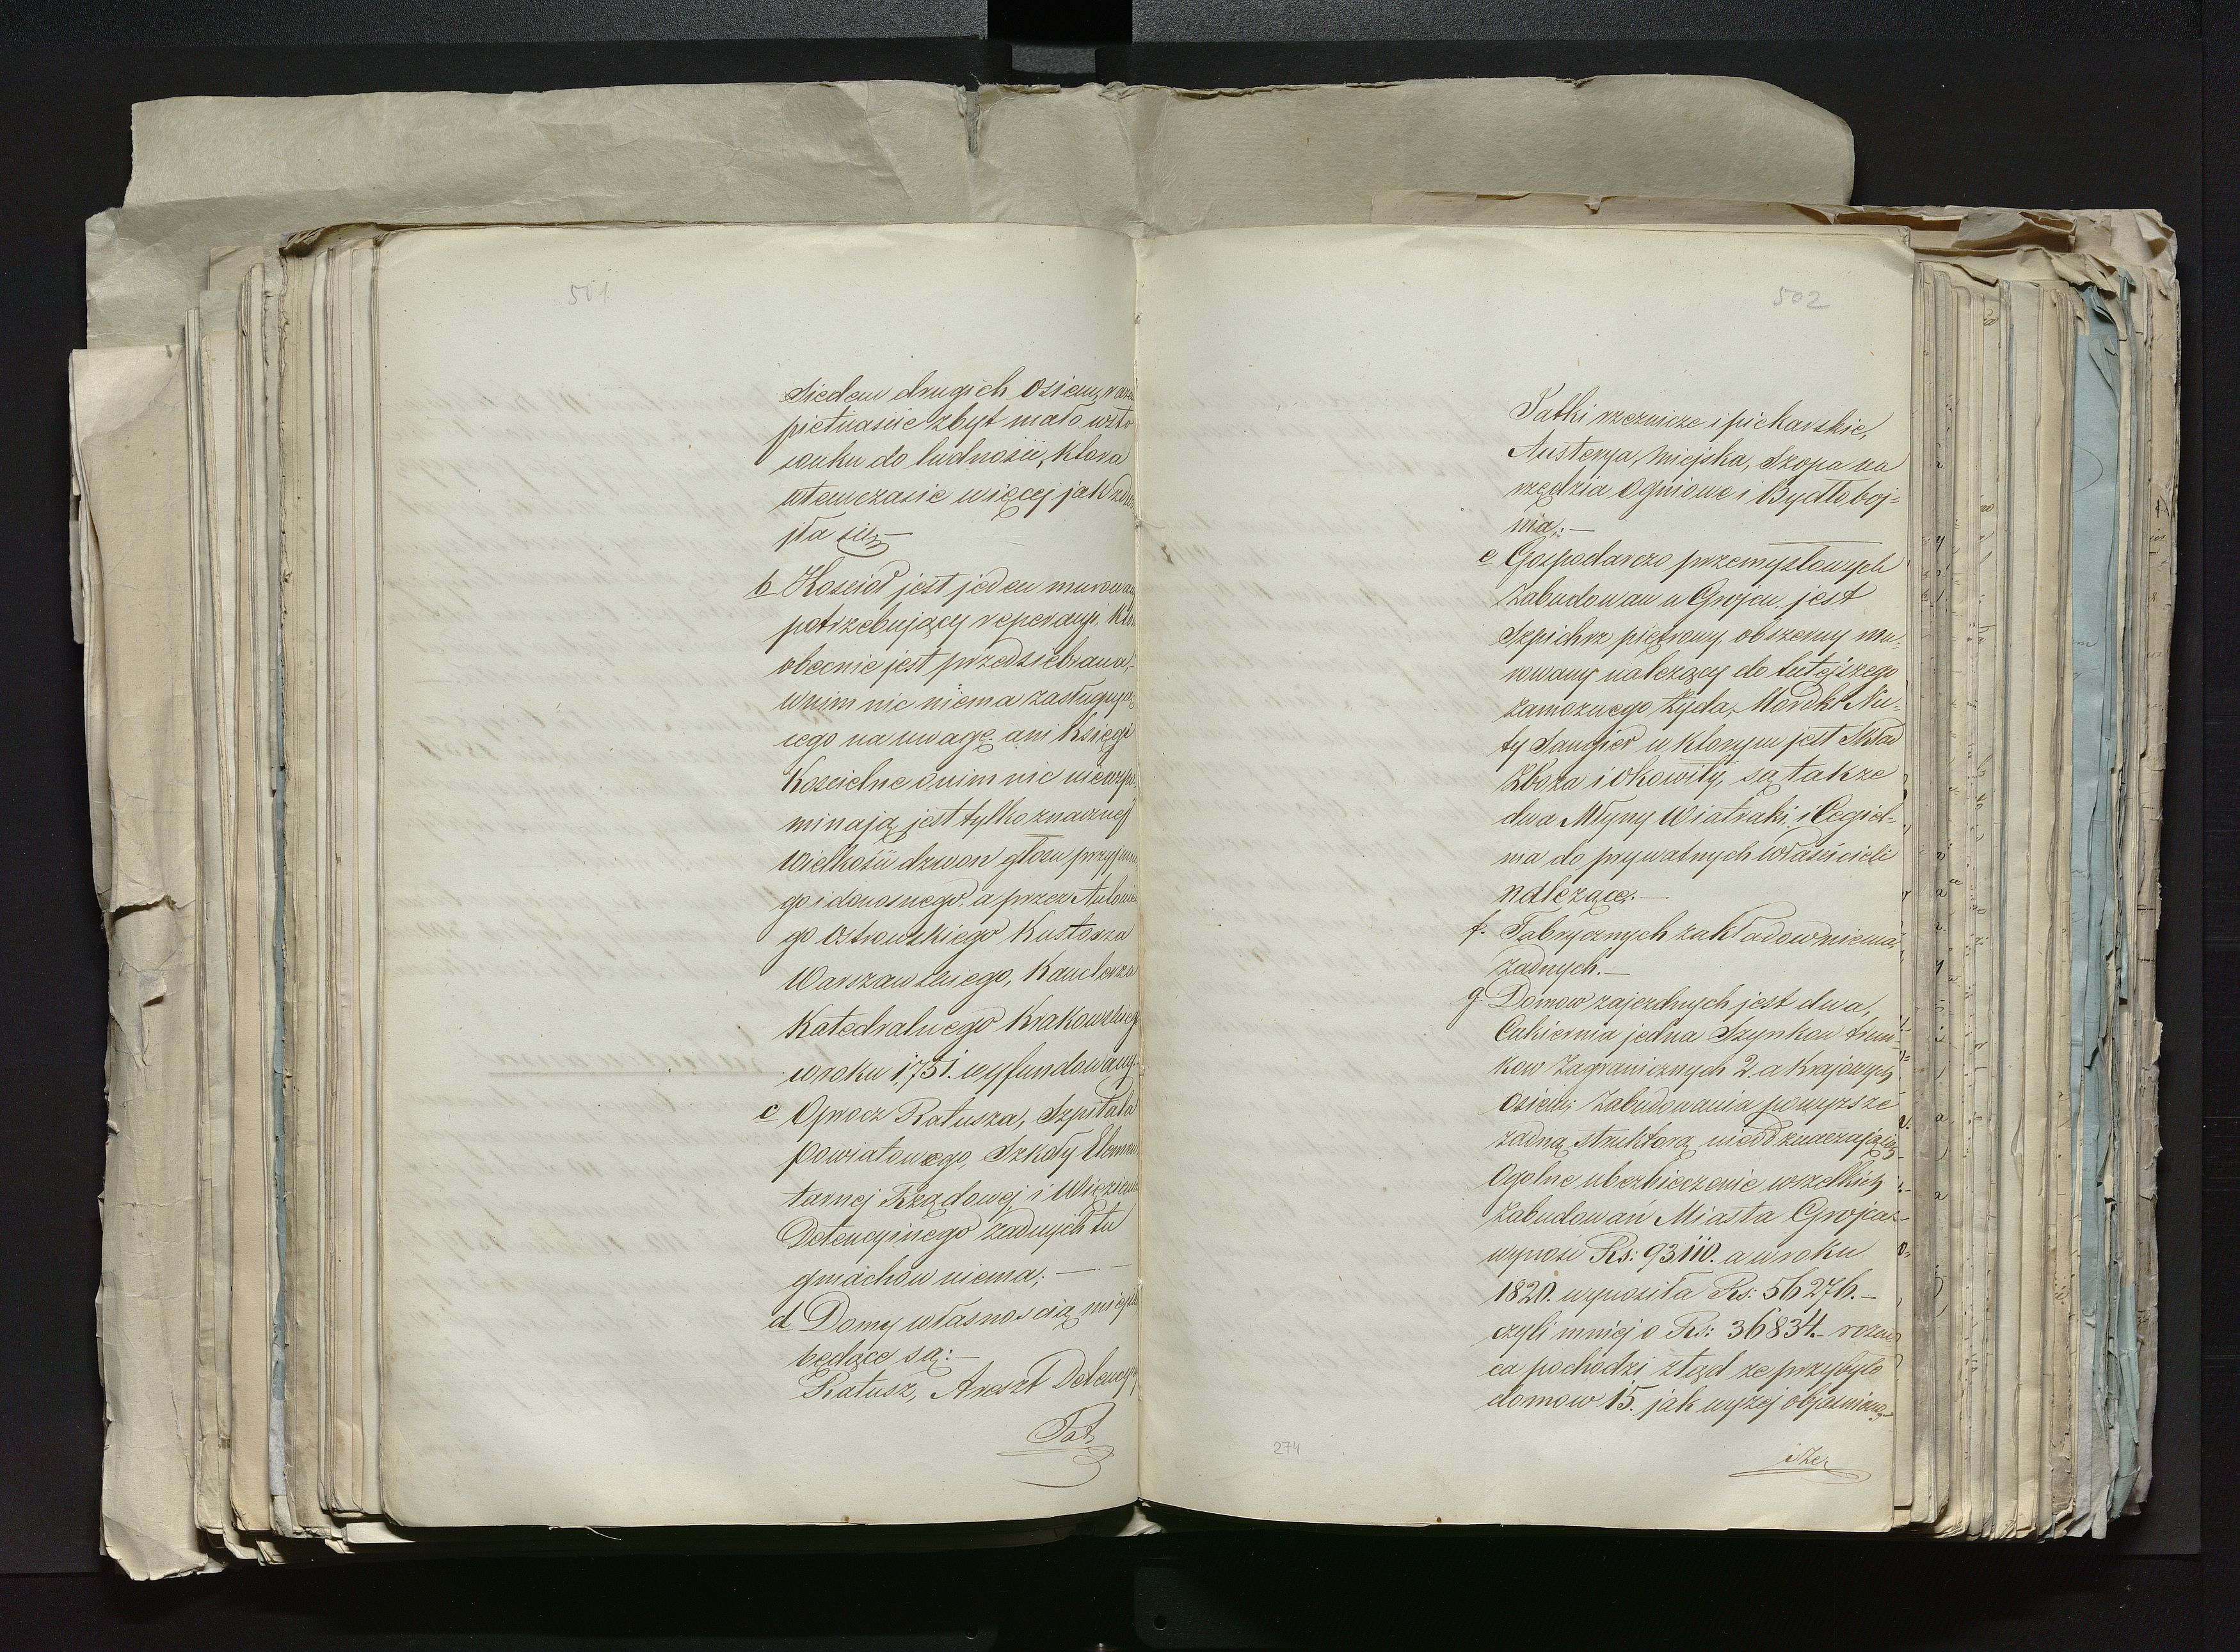 501
siedem drugich osiem, raze
pietnascie zbyt mało wsto
sunku do ludnosci, ktora
wtemczasie więcej jak zdwo
jła się
b Koscioł jest jeden murowany
potrzebujący reperacyi ktor
obecnie jest przedsiebrana,
wnim nic niema zasługują
cego na uwagę ani Księgi
Koscielne onim nic niewspo-
minają jest tylko znacznej
Wielkości dzwon głosu przyjemne
go i donosnego, a przez Antonie
go Ostrowskiego Kustosza
Warszawskiego, Kanclerza
Katedralnego Krakowskieg
w roku 1751. wyfundowany.
c Oprocz Ratusza, Szpitala
powiatowego, Szkoły Elemen
tarnej Rządowej i Więzienia
Detencyinego zadnych tu
gmachow niema; —
d Domy własnoscią miejską
będące są:—
Ratusz, Areszt Detency
Jat
502
Jatki rzeznicze i piekarskie,
Austerya, Miejska, Szopa na
rzędzia Ogniowe i Bydłoboj-
nia;—
e Gospodarczo przemysłowych
Zabudowan w Grojcu jest
Szpichrz piętrowy, obszerny mu-
rowany nalezący do tutejszego
zamoznego Zyda, Mordki Nu-
ty w ktorym jest Skład
Zboza i Okowity, są takze
dwa Młyny Wiatraki i Cegiel-
nia do prywatnych Właścicieli
nalezące.—
f. Fabrycznych zakładow niema
zadnych.—
g. Domow zajezdnych jest dwa,
Cukiernia jedna Szynkow trun-
kow Zagranicznych 2. a Krajowych
osiem; Zabudowania powyzsze
zadną strukturą nieodznaczają się
Ogolne ubezpieczenie wszelkich
Zabudowań Miasta Grojca-
wynosi Rs: 93110. a w roku
1820. wynosiła Rs: 56276.—
czyli mniej o Rs: 36834.— rozni
ca pochodzi ztąd ze przybyło
domow 15. jak wyzej objasniono
i Sze
274